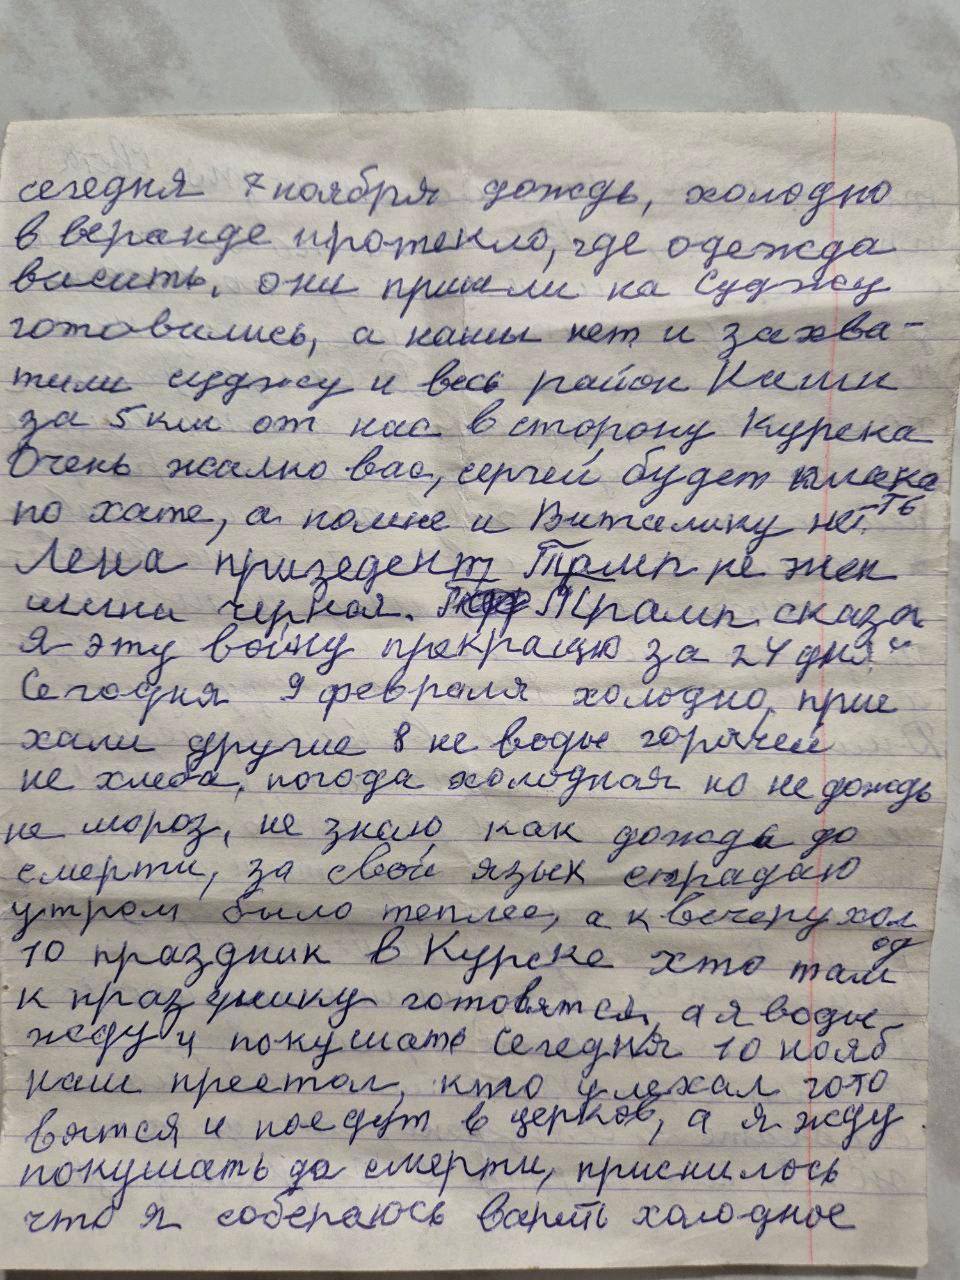 сегодня 7 ноября дождь, холодно
в веранде протекло, где одежда
висить, они пришли на Суджу
готовились, а нашы нет и захва-
тили суджу и весь район
за 5 км от нас в сторону Курска
Очень жалко вас, сергей будет плака
ть
по хате, а по мне и Виталику нет.
Лена призедент Трамп не жен
шина черная. Трамп сказал
я эту войну прекращю за 24 дня"
Сегодня 9 февраля холодно, прие
хали другие 8 не воды горячей
не хлеба, погода холодная но не дождь
не мороз, не знаю как дождь до
смерти, за свой язык страдаю
утром было теплее, а к вечеру хол
од
10 праздник в Курске хто там
к празднику готовятся, а я воды
жду и покушать Сегодня 10 нояб
наш престол, кто уехал гото
вятся и поедут в церков, а я жду
покушать до смерти, приснилось
что я собераюсь варить холодное